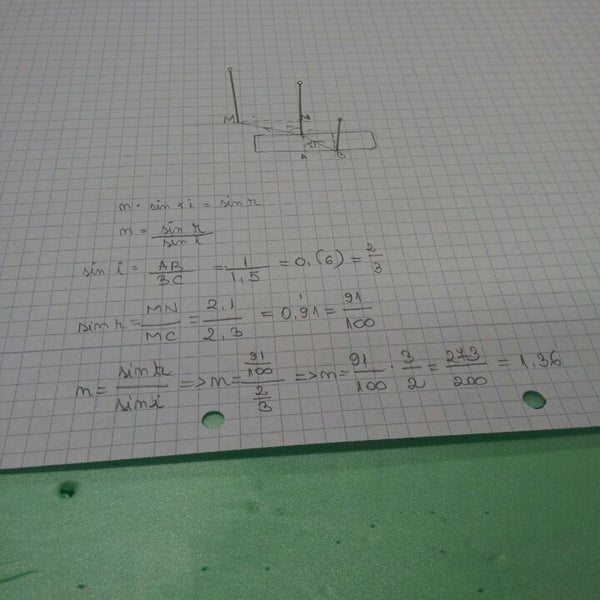 M N
A B
n · sin i = sin r
n = sin r / sin i
sin i = AB / BC = 1 / 1,5 = 0,(6) = 2/3
sin r = MN / MC = 2,1 / 2,3 = 0,91 = 91/100
n = sin r / sin i => n = 91/100 / 2/3 => n = 91/100 · 3/2 = 273/200 = 1.36